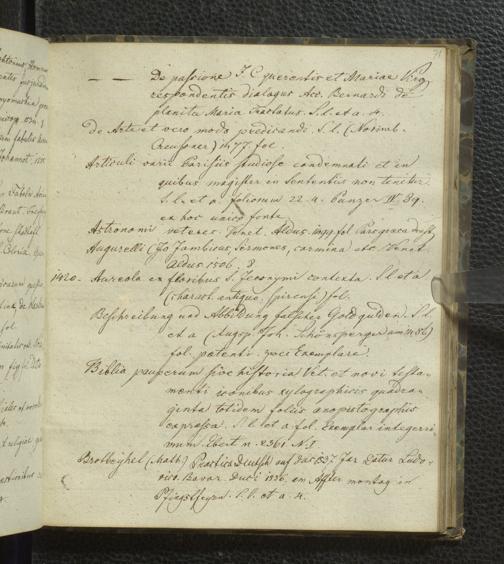 71
— — De passione J. C querentis et Mariae Virg
respondentis dialogus Acc. Bernardi de
planctu Maria Tractatus. S. l. et a. 4.
De Arte et vero modo predicandi. S. l. (Norimb.
Creussner) 1477. fol.
Articuli varii Parisiis studiose condemnati et in
quibus magister in Sententiis non tenetur
S. l. et a. foliorum 22. 4. Panzer IV. 89.
ex hoc unico fonte.
Astronomi veteres. Venet. Aldus. 1499. fol.
Augurelli (Jo Jambicus, Sermones, carmina etc. Venet.
Aldus 1505. 8
1420. Aureola ex floribus S. Hieronymi contexta. S. l. et a
(charact. antiquo. Spirensi) fol.
Beschreibung und Abbildung falscher Goldgulden. S. l.
et a (Augsp. Joh. Schönsperger um 1486)
fol. patenti. zwei Exemplare.
Biblia pauperum sive historia Vet. et novi testa-
menti iconibus xylographicis quadra-
ginta totidem foliis anopistographis
expressa. S. l. et a fol. Exemplar integerri
mum Ebert n. 2361. N. I.
Brotbeyhel (Math) Practica Deutsch auf das 1537 Jar Datur Ludo-
vico Bavar. Duci 1536. am Affter montag in
S. l. et a. 4.